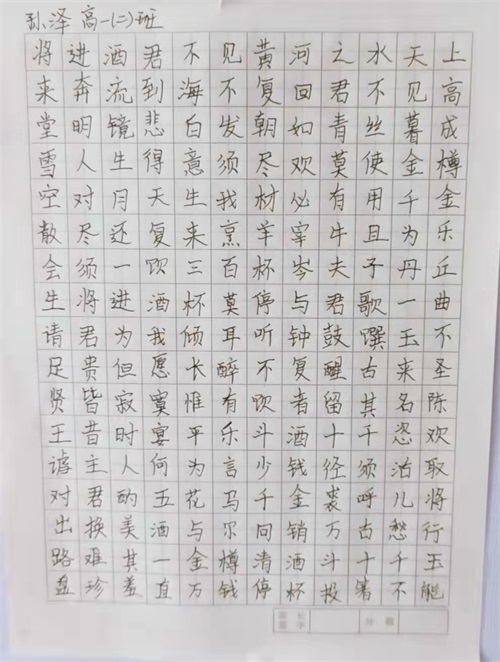 孙泽 高一(二)班
将进酒君不见黄河之水天上
来奔流到海不复回君不见高
堂明镜悲白发朝如青丝暮成
雪人生得意须尽欢莫使金樽
空对月天生我材必有用千金
散尽还复来烹羊宰牛且为乐
会须一饮三百杯岑夫子丹丘
生将进酒杯莫停与君歌一曲
请君为我倾耳听钟鼓馔玉不
足贵但愿长醉不复醒古来圣
贤皆寂寞惟有饮者留其名陈
王昔时宴平乐斗酒十千恣欢
谑主人何为言少钱径须沽取
对君酌五花马千金裘呼儿将
出换美酒与尔同销万古愁行
路难其一金樽清酒斗十千玉
盘珍羞直万钱停杯投箸不能
家长签字